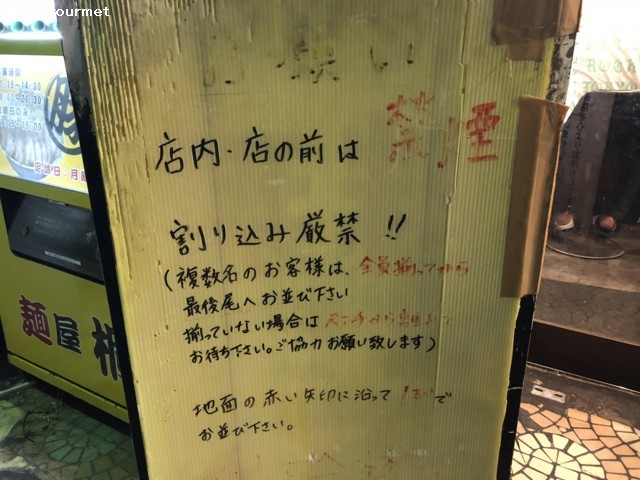 ourmet
お願い
店内・店の前は 禁煙
割り込み厳禁!!
(複数名のお客様は、全員揃ってから
最後尾へお並び下さい
揃っていない場合は
お待ち下さい。ご協力お願い致します)
地面の赤い矢印に沿って で
お並び下さい。
豚
定休日:月
麺屋